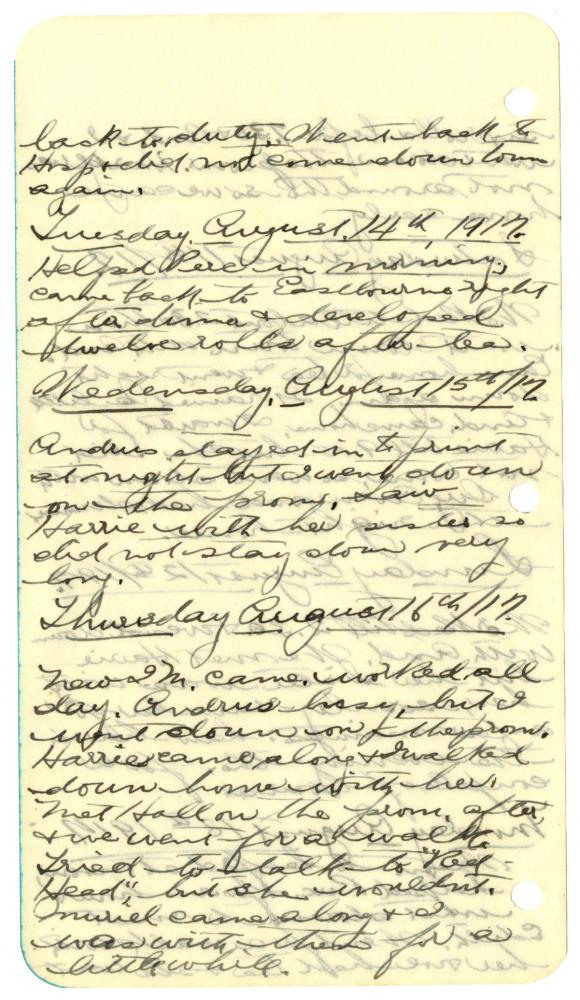 back to duty. Went back to
Hosp & did not come down town
again.
Tuesday, August, 14th, 1917.
Helped Pee in morning,
came back to Eastbourne right
after dinna & developed
twelve rolls after tea.
Wedensday, August 15th/17
Andrus stayed in to print
at night but I went down
on the prom. Saw
Harrie with her sister so
did not stay down very
long.
Thursday August 16th/17.
New S.M. came. worked all
day. Andrus busy, but I
went down on the prom.
Harrie came along & I walked
down home with her.
Met Hall on the prom. after,
& we went for a walk.
Tried to talk to "Red-
Head", but she wouldn't.
Muriel came along & I
was with them for a
little while.